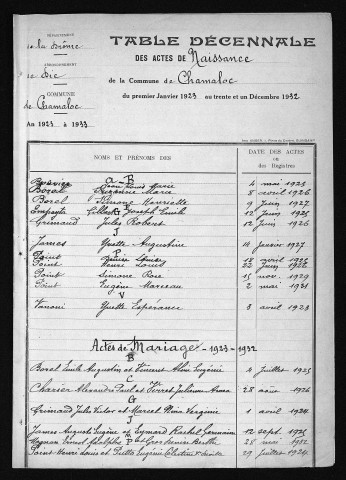 DÉPARTEMENT
de la Drôme
ARRONDISSEMENT
de Die
COMMUNE
de Chamaloc
An 1923 à 1933
TABLE DÉCENNALE
DES ACTES DE Naissance
de la Commune de Chamaloc
du premier Janvier 1923 au trente et un Décembre 1932
NOMS ET PRÉNOMS DES
DATE DES ACTES
ou des Registres
B
Bouvier Jean Louis Marie 4 mai 1925
Borel Suzanne Marie 8 avril 1926
Borel Simone Henriette 9 juin 1927
Empeyta Gilbert Joseph Emile 12 juin 1925
Grimaud Jules Robert 12 juin 1926
J
James Yvette Augustine 14 janvier 1927
P
Point Denise Louise 18 avril 1925
Point Henri Louis 22 juin 1926
Point Simone Rose 15 nov. 1929
Point Eugène Marceau 2 mai 1931
V
Vanoni Yvette Espérance 3 avril 1923
Actes de Mariage 1923-1932
B
Borel Emile Augustin et Vincent Aline Eugénie 4 juillet 1925
C
Charrier Alexandre Paul et Ferret Julienne Anna 28 août 1926
G
Grimaud Jules Victor et Marcel Nina Virginie 1 avril 1924
J
James Auguste Eugène et Eymard Rachel Germaine 12 sept. 1925
Magnan Ernest Adolphe et Gros Denise Berthe 28 mai 1932
P
Point Henri Louis et 29 juillet 1924